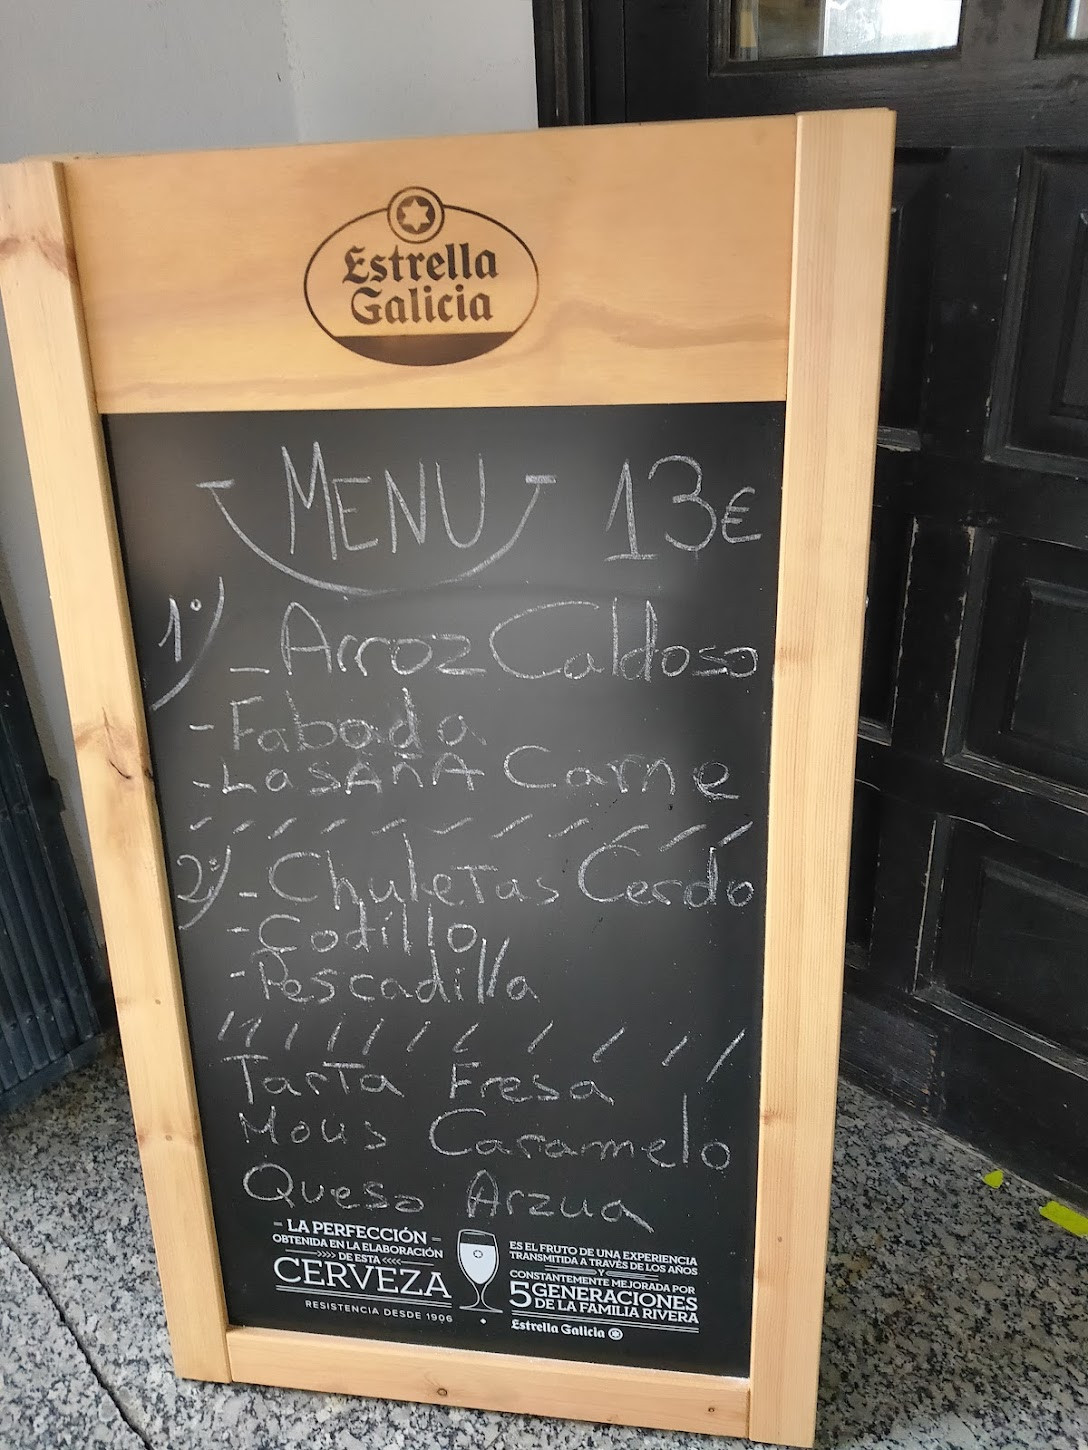 Estrella
Galicia
MENU 13€
1º) - Arroz Caldoso
- Fabada
- LASAÑA Carne
2º) - Chuletas Cerdo
- Codillo
- Pescadilla
Tarta Fresa
Mous Caramelo
Queso Arzua
- LA PERFECCIÓN -
OBTENIDA EN LA ELABORACIÓN
>>>> DE ESTA <<<<
CERVEZA
RESISTENCIA DESDE 1906
ES EL FRUTO DE UNA EXPERIENCIA
TRANSMITIDA A TRAVÉS DE LOS AÑOS
Y
CONSTANTEMENTE MEJORADA POR
5 GENERACIONES
DE LA FAMILIA RIVERA
Estrella Galicia